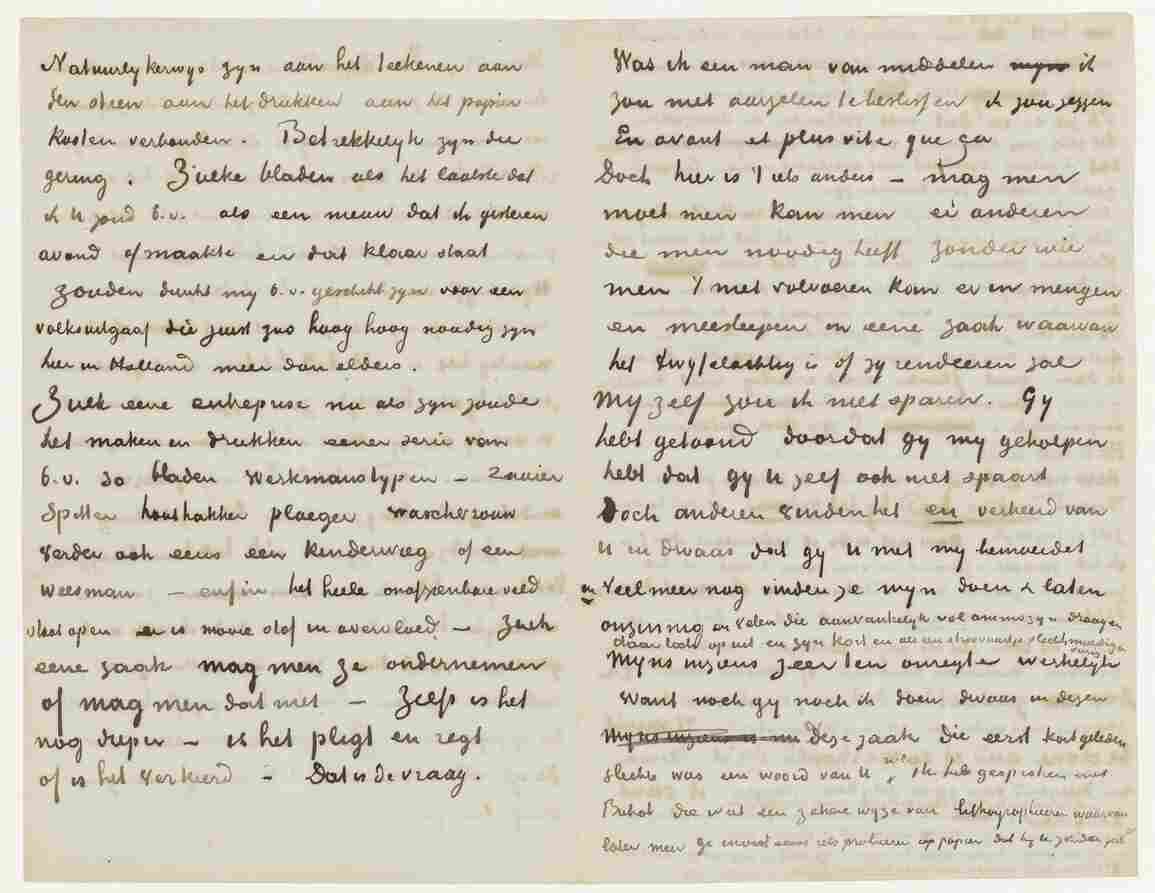 Natuurlykerwys zyn aan het teekenen aan
den steen aan het drukken aan het papier
kosten verbonden. Betrekkelyk zyn die
gering. Zulke bladen als het laatste dat
ik U zond b.v. als een nieuw dat ik gisteren
avond afmaakte en dat klaar staat
zouden dunkt my b.v. geschikt zyn voor een
volksuitgaaf die juist zoo hoog hoog noodig zyn
hier in Holland meer dan elders.
Zulk eene entreprise nu als zyn zoude
het maken en drukken eener serie van
b.v. 30 bladen werkmanstypen – zaaier
spitter houthakker ploeger waschvrouw
verder ook eens een kinderwieg of een
weesman – enfin het heele onafzienbare veld
staat open er is mooie stof in overvloed – zulk
eene zaak mag men ze ondernemen
of mag men dat niet – Zelfs is het
nog dieper – is het pligt en regt
of is het verkeerd – Dat is de vraag.
Was ik een man van middelen ik
zou niet aarzelen te beslissen ik zou zeggen
En avant et plus vite que ça
Doch hier is 't iets anders – mag men
moet men kan men er anderen
die men noodig heeft zonder wie
men 't niet volvoeren kan er in mengen
en meesleepen in eene zaak waarvan
het twyfelachtig is of zy rendeeren zal
My zelf zou ik niet sparen. Gy
hebt getoond doordat gy my geholpen
hebt dat gy U zelf ook niet spaart
Doch anderen vinden het en verkeerd van
U en dwaas dat gy U met my bemoeidet
en veel meer nog vinden ze myn doen & laten
onzinnig en velen die aanvankelyk vol animo zyn draaijen
daar loots op uit en zyn kort en als een stroovuurtje slechts moedig
Myns inziens zeer ten onregte werkelyk
Want noch gy noch ik doen dwaas in dezen
Myns inziens is nu Deze zaak die eerst kort geleden
slechts was een woord van U Ik heb gesproken met
Buhot die wist een zekere wyze van lithographieeren waarvan
laten men ge moest eens iets probeeren op papier dat hy U zenden zal